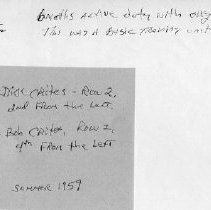 6 months active duty with
This was a basic training unit
Dick Crites - Row 2,
2nd From the Left
Bob Crites, Row 2,
4th From the Left
Summer 1959